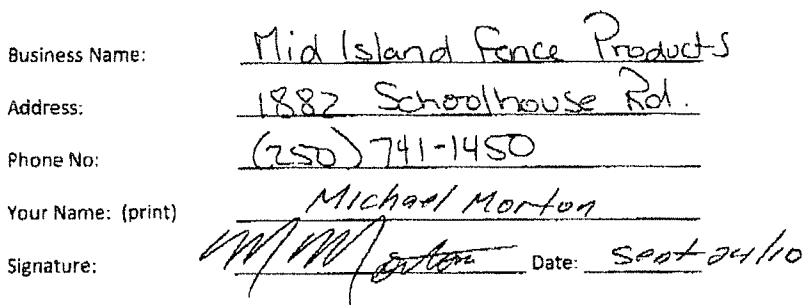 Business Name: Mid Island Fence Products
Address: 1882 Schoolhouse Rd.
Phone No: (250) 741-1450
Your Name: (print) Michael Morton
Signature: M Morton Date: Sept 24/10